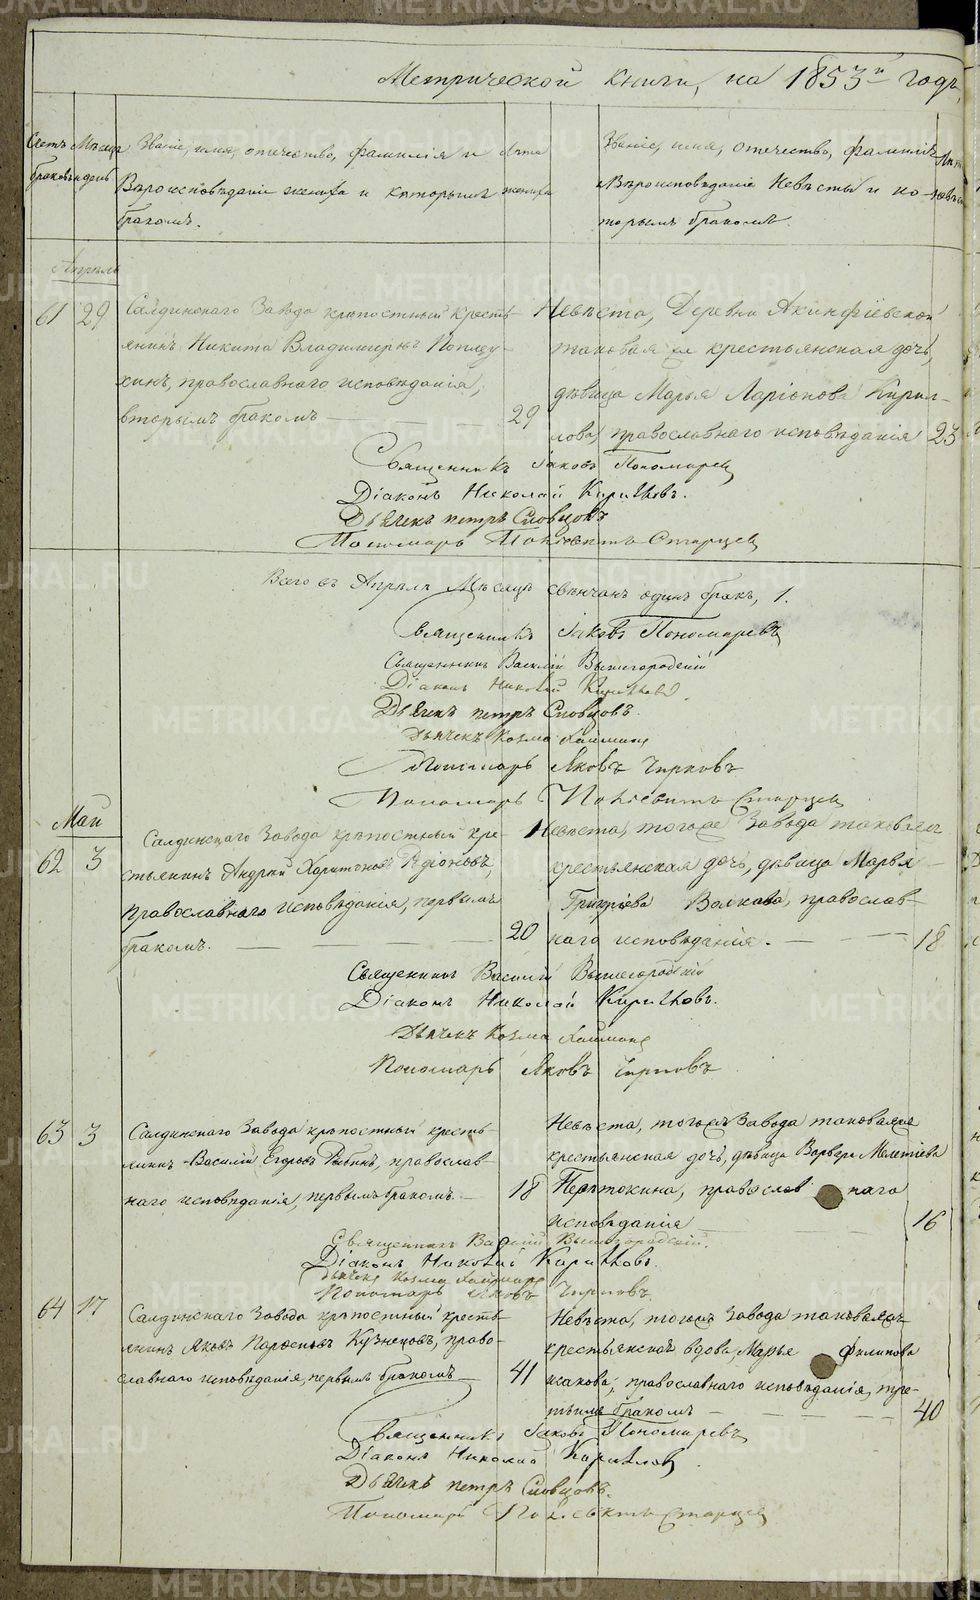 Метрической книги, на 1853й годъ,
Счетъ браковъ
Мѣсяцъ и день
Званіе, имя, отечество, фамилія и
Вѣроисповѣданіе жениха и которымъ
бракомъ.
Лѣта жениха
Званіе, имя, отечество, фамилія
и Вѣроисповѣданіе Невѣсты и ко-
торымъ бракомъ.
Апрѣль
61 29
Салдинскаго Завода крѣпостный кресть-
янинъ Никита Владимеровъ
православнаго исповѣданія,
вторымъ бракомъ 29
Невѣста, Деревни Акинфіевской
таковая же крестьянская дочь,
дѣвица Марья Ларіонова Кирил-
лова, православнаго исповѣданія 23
Священникъ Іаковъ Пономаревъ
Діаконъ Николай Кирилловъ.
Дьячекъ петръ Словцовъ
Пономарь Поліевктъ Старцев
Всего въ Апрѣлѣ Мѣсяцѣ свѣнчанъ одинъ бракъ, 1.
Священникъ Іаковъ Пономаревъ
Священникъ Василій Вышегородскій
Діаконъ Николай Кирилловъ.
Дьячекъ петръ Словцовъ.
Дьячекъ Козма
Пономарь Яковъ Чирковъ
Пономарь Поліевктъ Старцев
Май
62 3
Салдинскаго Завода крѣпостный кре-
стьянинъ Андрей Харитоновъ Родіоновъ,
православнаго исповѣданія, первымъ
бракомъ. 20
Невѣста, тогоже Завода таковаяже
крестьянская дочь, дѣвица Марья
Григорьева Волкова, православ-
наго исповѣданія. 18
Священникъ Василій Вышегородскій
Діаконъ Николай Кирилловъ.
Дьячекъ Козма
Пономарь Яковъ Чирковъ
63 3
Салдинскаго Завода крѣпостный кресть-
янинъ Василій Егоровъ Рябинъ, православ-
наго исповѣданія, первымъ бракомъ. 18
Невѣста, тогожъ Завода таковаяже
крестьянская дочь, дѣвица Варвара Мелетіева
православнаго
исповѣданія 16
Священникъ Василій Вышегородскій.
Діаконъ Николай Кирилловъ.
Дьячекъ Козма
Пономарь Яковъ Чирковъ.
64 17
Салдинскаго Завода крѣпостный кресть-
янинъ Яковъ Кузнецовъ, право-
славнаго исповѣданія, первымъ бракомъ 41
Невѣста, тогожъ Завода таковаяже
крестьянская вдова, Марья Филипова
православнаго исповѣданія, тре-
тьимъ бракомъ 40
Священникъ Іаковъ Пономаревъ
Діаконъ Николай Кирилловъ.
Дьячекъ петръ Словцовъ.
Пономарь Поліевктъ Старцев
METRIKI.GASO-URAL.RU